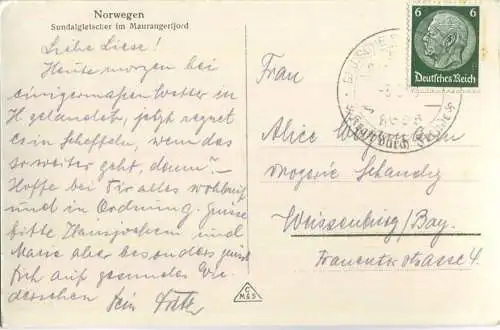 Norwegen
Sundalgletscher im Maurangerfjord
Liebe Liese!
Heute morgen bei
einigermaßen Wetter in
H. gelandet, jetzt regnet
es in Scheffeln, wenn das
so weiter geht, dann" –
Hoffe bei Dir alles wohlauf
und in Ordnung. Grüsse
bitte Hausgenossen und
Marie aber besonders grüsst
Dich auf gesundes Wie-
dersehen Dein
6 6
Deutsches Reich
Frau
Alice
Drogerie
Weissenburg/Bay.
Frauentorstrasse 4.